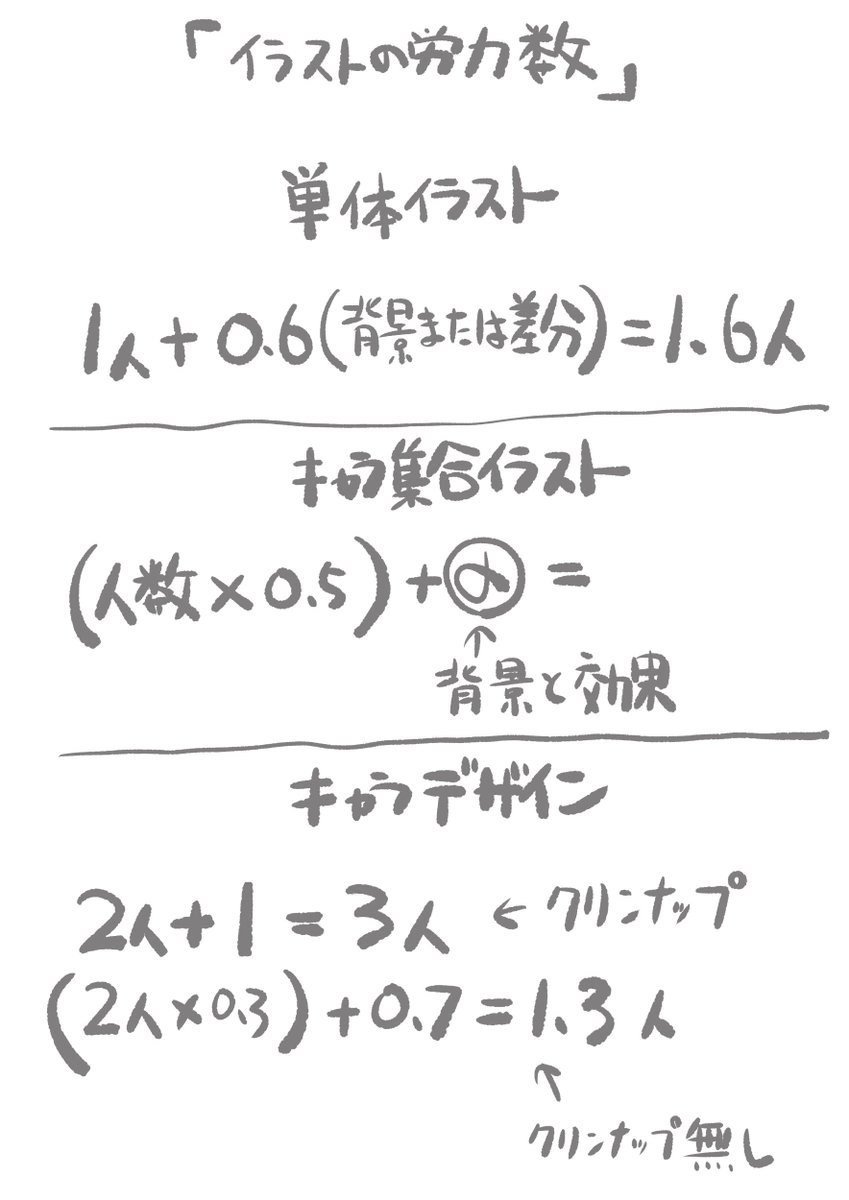 「イラストの労力数」
単体イラスト
1人+0.6(背景または差分)=1.6人
キャラ集合イラスト
(人数×0.5)+α=
↑
背景と効果
キャラデザイン
2人+1=3人 ←クリンナップ
(2人×0.3)+0.7=1.3人
↑
クリンナップ無し